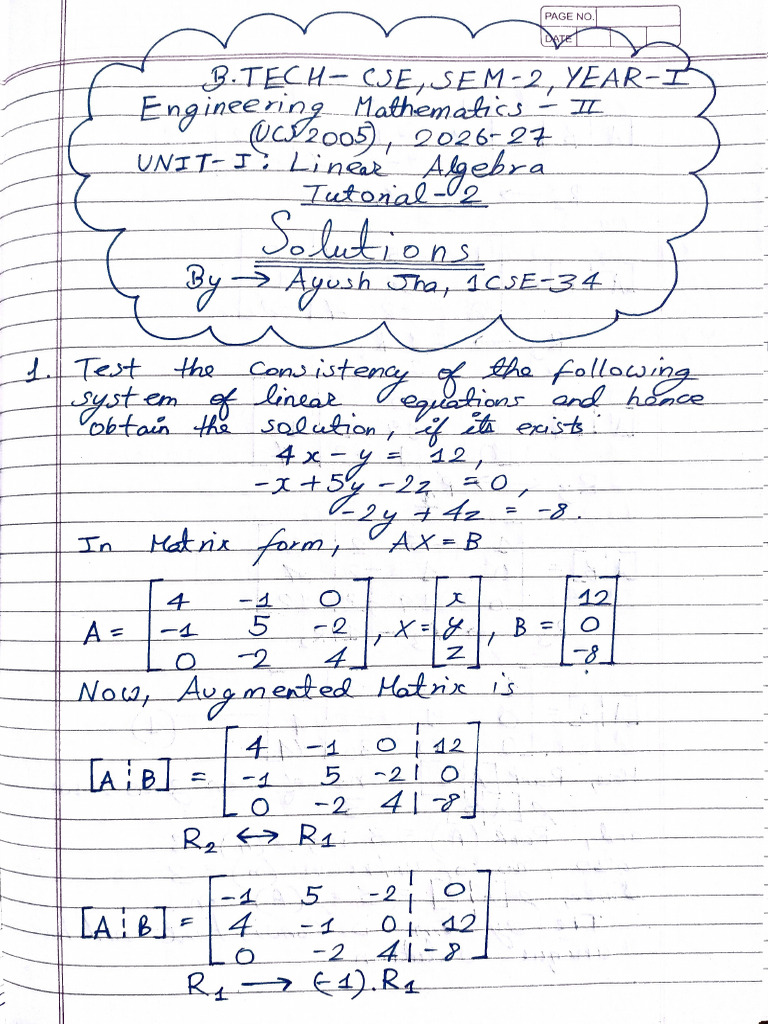 PAGE NO.
DATE
B.TECH- CSE, SEM-2, YEAR-I
Engineering Mathematics - II
(UCS2005), 2026-27
UNIT-I: Linear Algebra
Tutorial-2
Solutions
By → Ayush Jha, 1CSE-34
1. Test the consistency of the following
system of linear equations and hence
obtain the solution, if its exists:
4x - y = 12,
-x + 5y - 2z = 0,
-2y + 4z = -8.
In Matrix form, AX = B
A = [4 -1 0; -1 5 -2; 0 -2 4], X = [x; y; z], B = [12; 0; -8]
Now, Augmented Matrix is
[A ¦ B] = [4 -1 0 ¦ 12; -1 5 -2 ¦ 0; 0 -2 4 ¦ -8]
R₂ ↔ R₁
[A ¦ B] = [-1 5 -2 ¦ 0; 4 -1 0 ¦ 12; 0 -2 4 ¦ -8]
R₁ → (-1).R₁